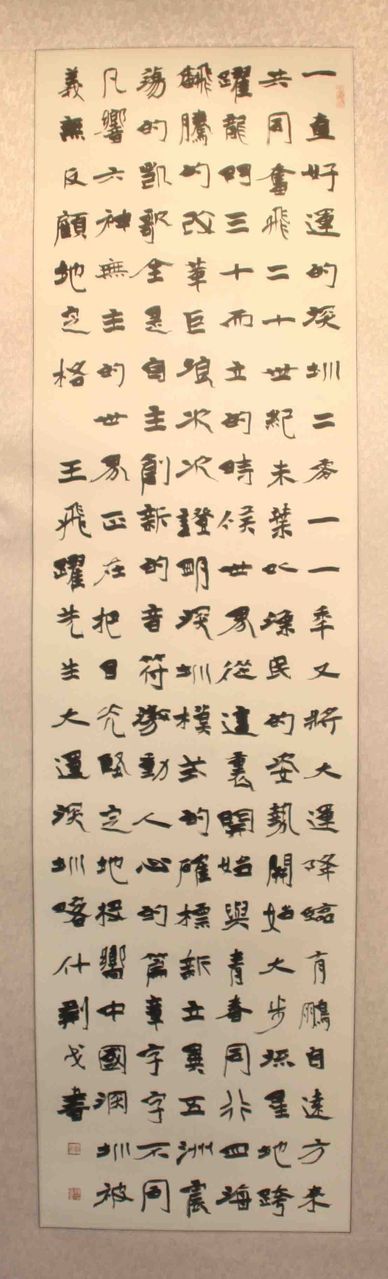 一直好運的深圳二零一一年又將大運降臨有鵬自遠方来
共同奮飛二十世紀末葉以漁民的姿勢開始大步流星地跨
躍龍門三十而立的時候世界從這裏開始與青春同行四海
翻騰的改革巨浪次次證明深圳模式的確標新立異五洲震
蕩的凱歌全是自主創新的音符激動人心的篇章字字不同
凡響六神無主的世界正在把目光堅定地投嚮中國深圳被
義無反顧地定格 王飛躍先生大運深圳喀什劉戈書